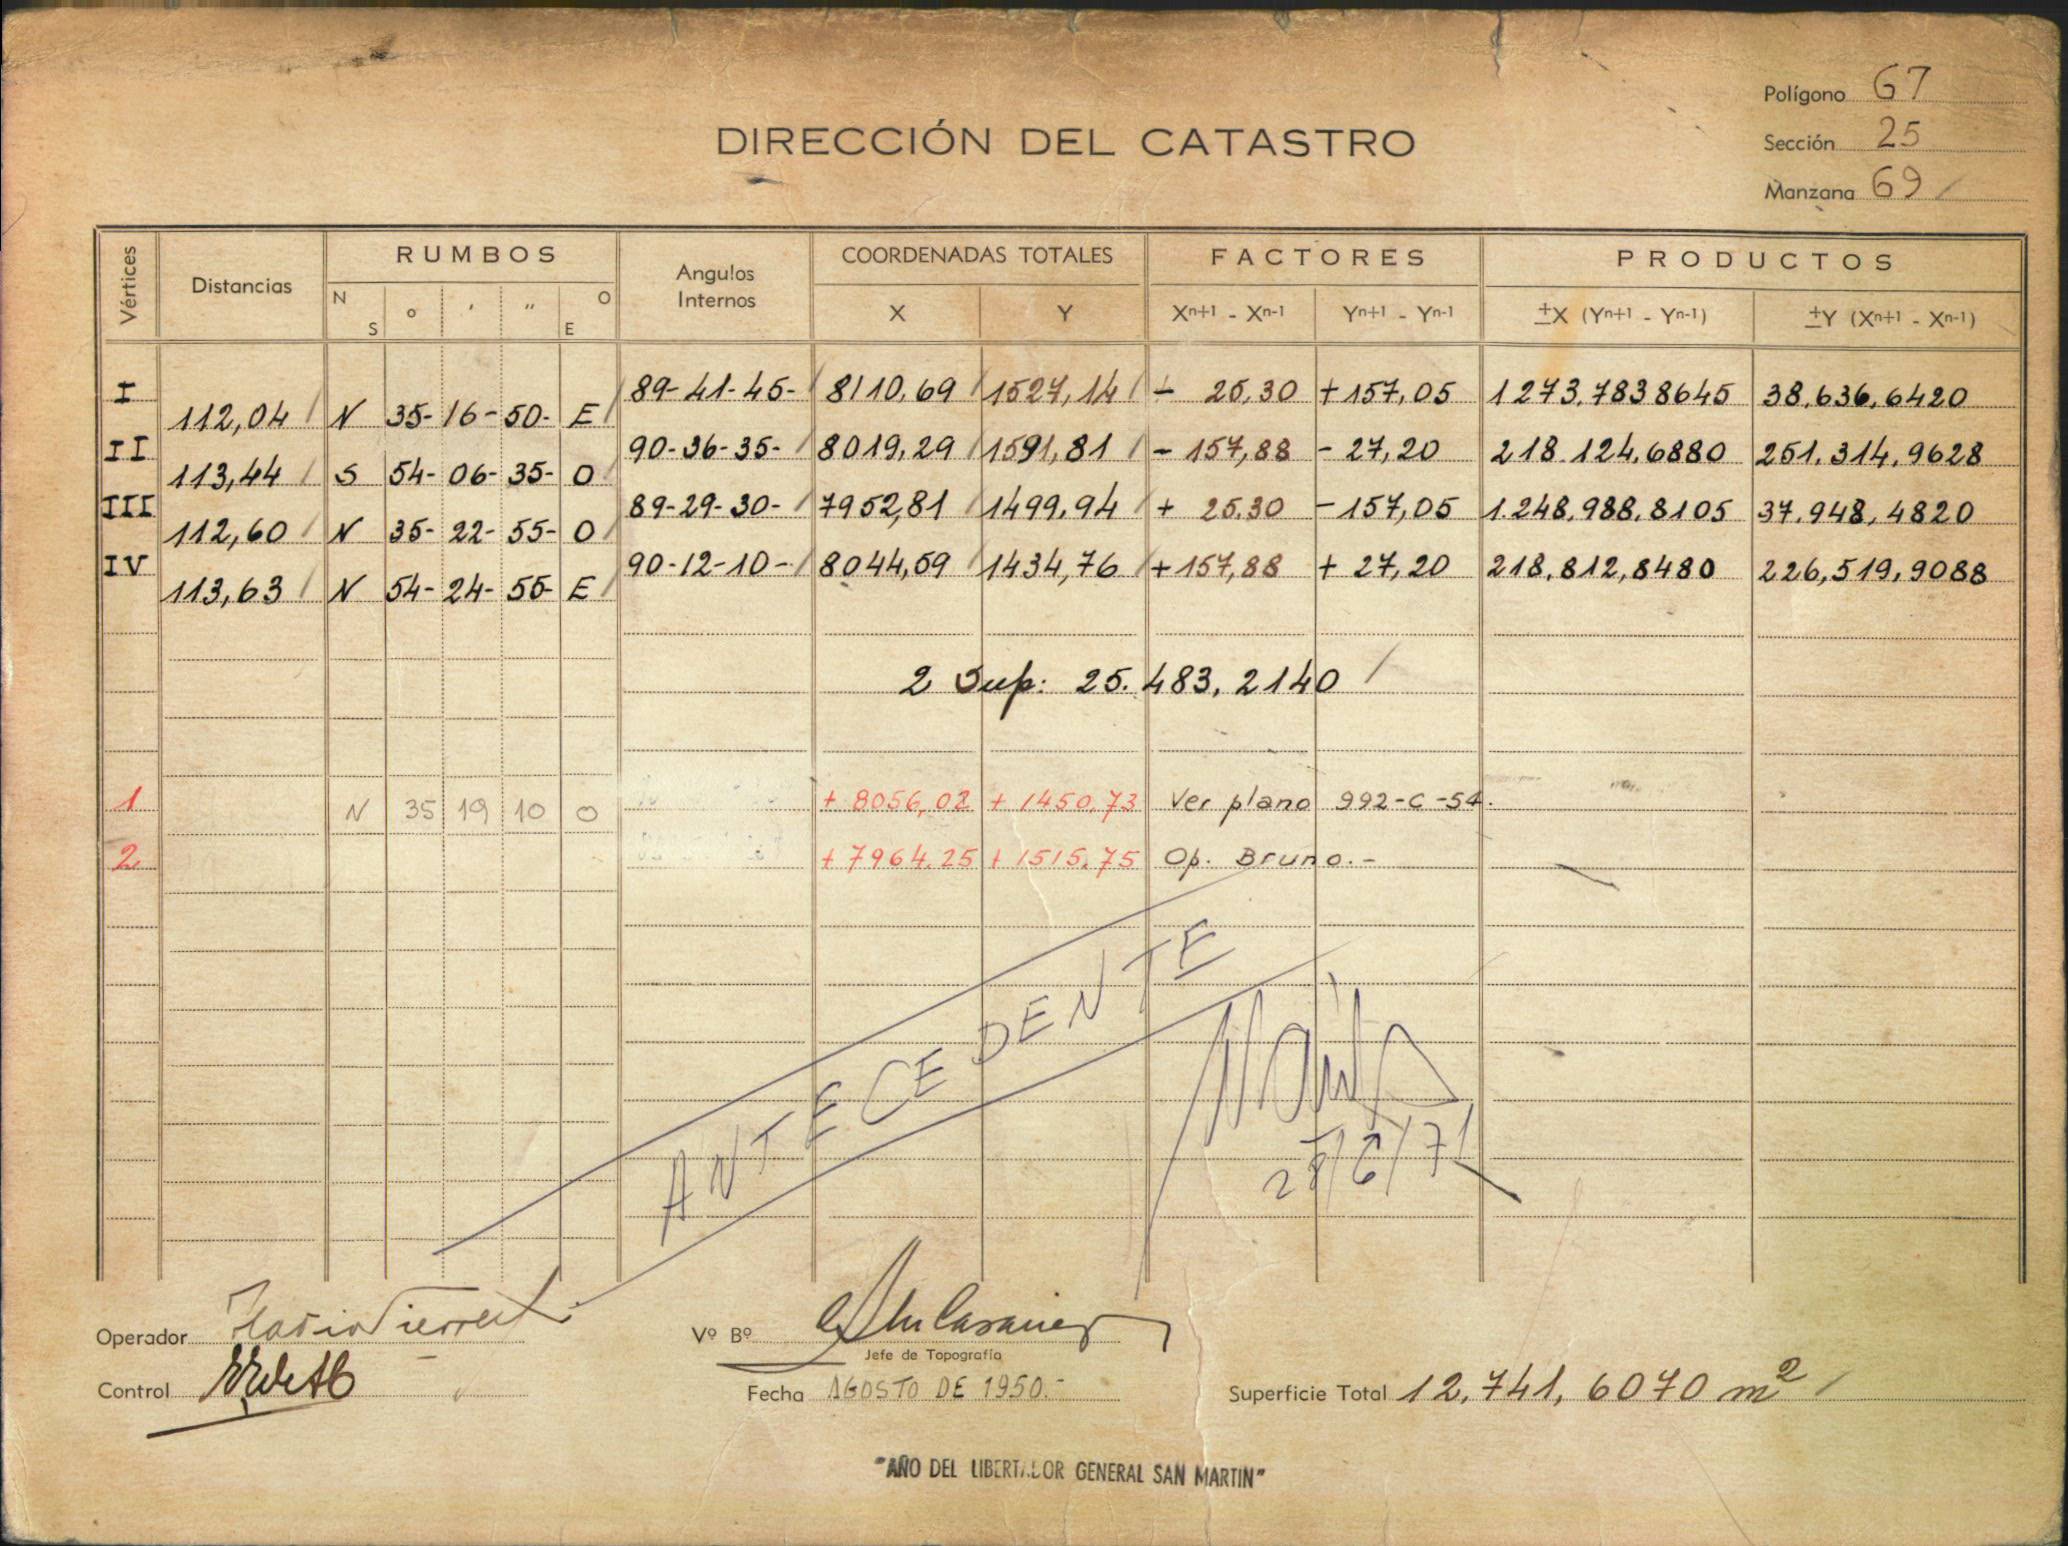 Polígono 67
DIRECCIÓN DEL CATASTRO
Sección 25
Manzana 69
Vértices Distancias RUMBOS Angulos Internos COORDENADAS TOTALES FACTORES PRODUCTOS
N S ° ' " O E X Y Xn+1 - Xn-1 Yn+1 - Yn-1 ±X (Yn+1 - Yn-1) ±Y (Xn+1 - Xn-1)
I 89-41-45- 8110,69 1527,14 - 25,30 +157,05 1273,7838645 38.636,6420
112,04 N 35-16-50- E
II 90-36-35- 8019,29 1591,81 - 157,88 - 27,20 218.124,6880 251.314,9628
113,44 S 54-06-35- O
III 89-29-30- 7952,81 1499,94 + 25.30 -157,05 1.248.988,8105 37.948,4820
112,60 N 35-22-55- O
IV 90-12-10- 8044,59 1434,76 +157,88 + 27,20 218.812,8480 226,519,9088
113,63 N 54-24-55- E
2 Sup: 25.483,2140
1 N 35 19 10 O + 8056,02 + 1450,73 Ver plano 992-C-54.
2 + 7964.25 + 1515.75 Op. Bruno.-
ANTECEDENTE
28/6/71
Operador
Vº Bº
Jefe de Topografía
Control
Fecha AGOSTO DE 1950.-
Superficie Total 12,741,6070 m2
"AÑO DEL LIBERTADOR GENERAL SAN MARTIN"